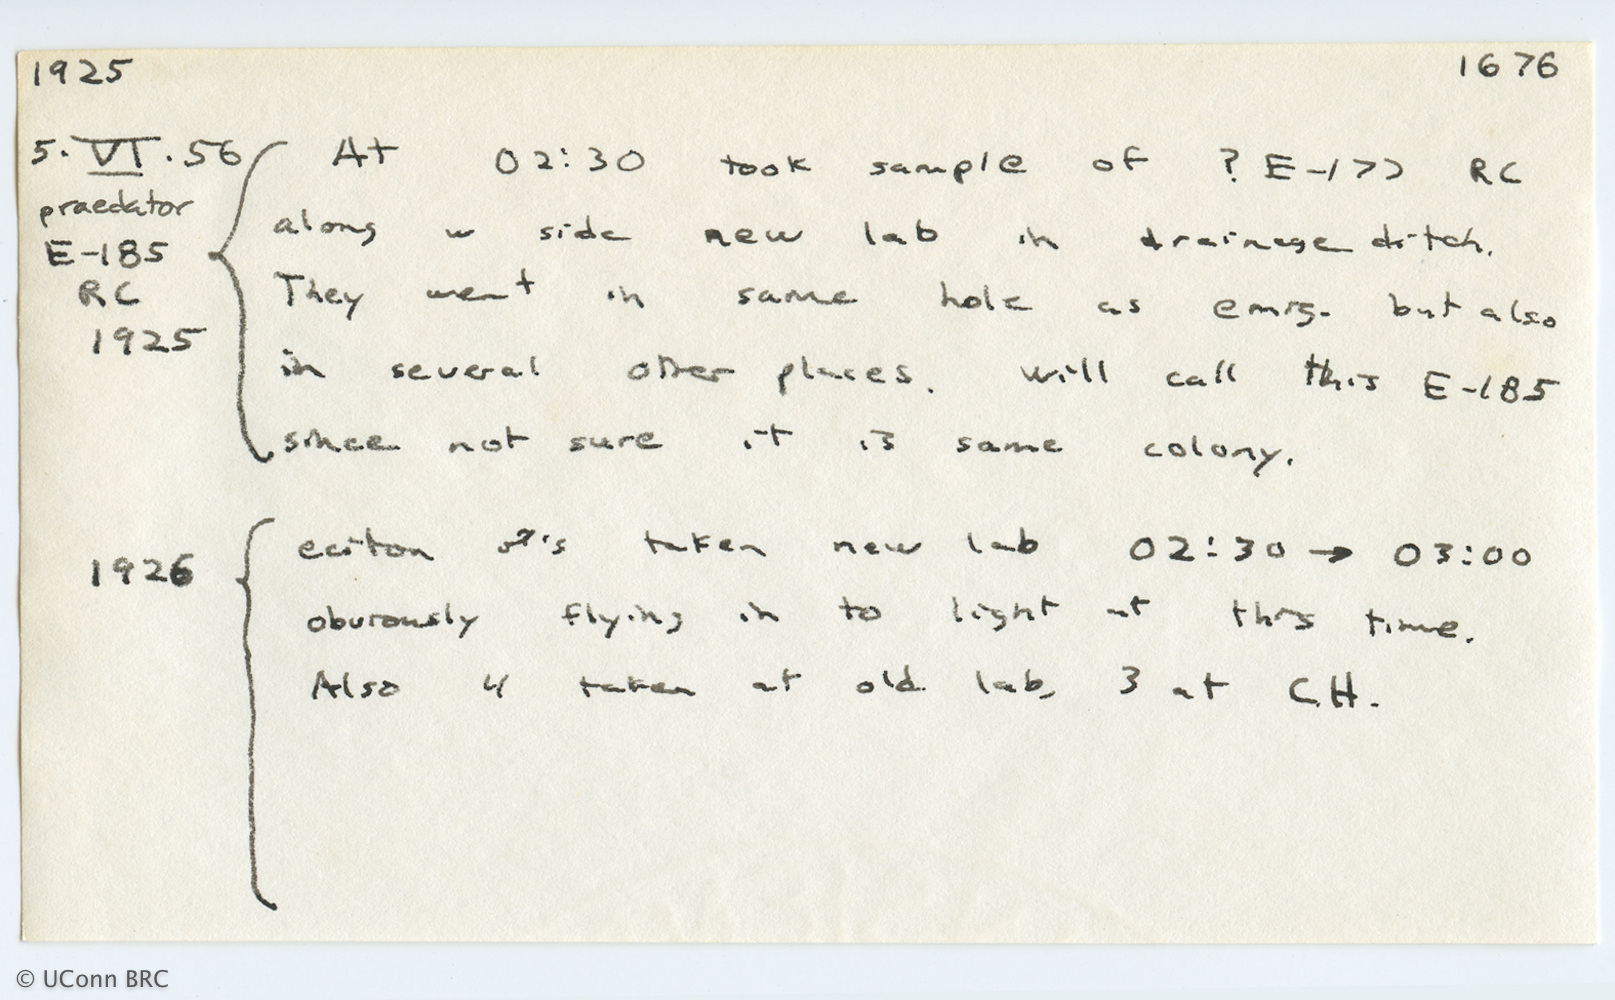 1925 1676
5.VI.56 At 02:30 took sample of ? E-177 RC
praedator
along w side new lab in drainage ditch.
E-185
RC
They went in same hole as emig. but also
1925
in several other places. Will call this E-185
since not sure it is same colony.
1926 eciton ♂'s taken new lab 02:30 → 03:00
obviously flying in to light at this time.
Also 4 taken at old lab, 3 at CH.
© UConn BRC